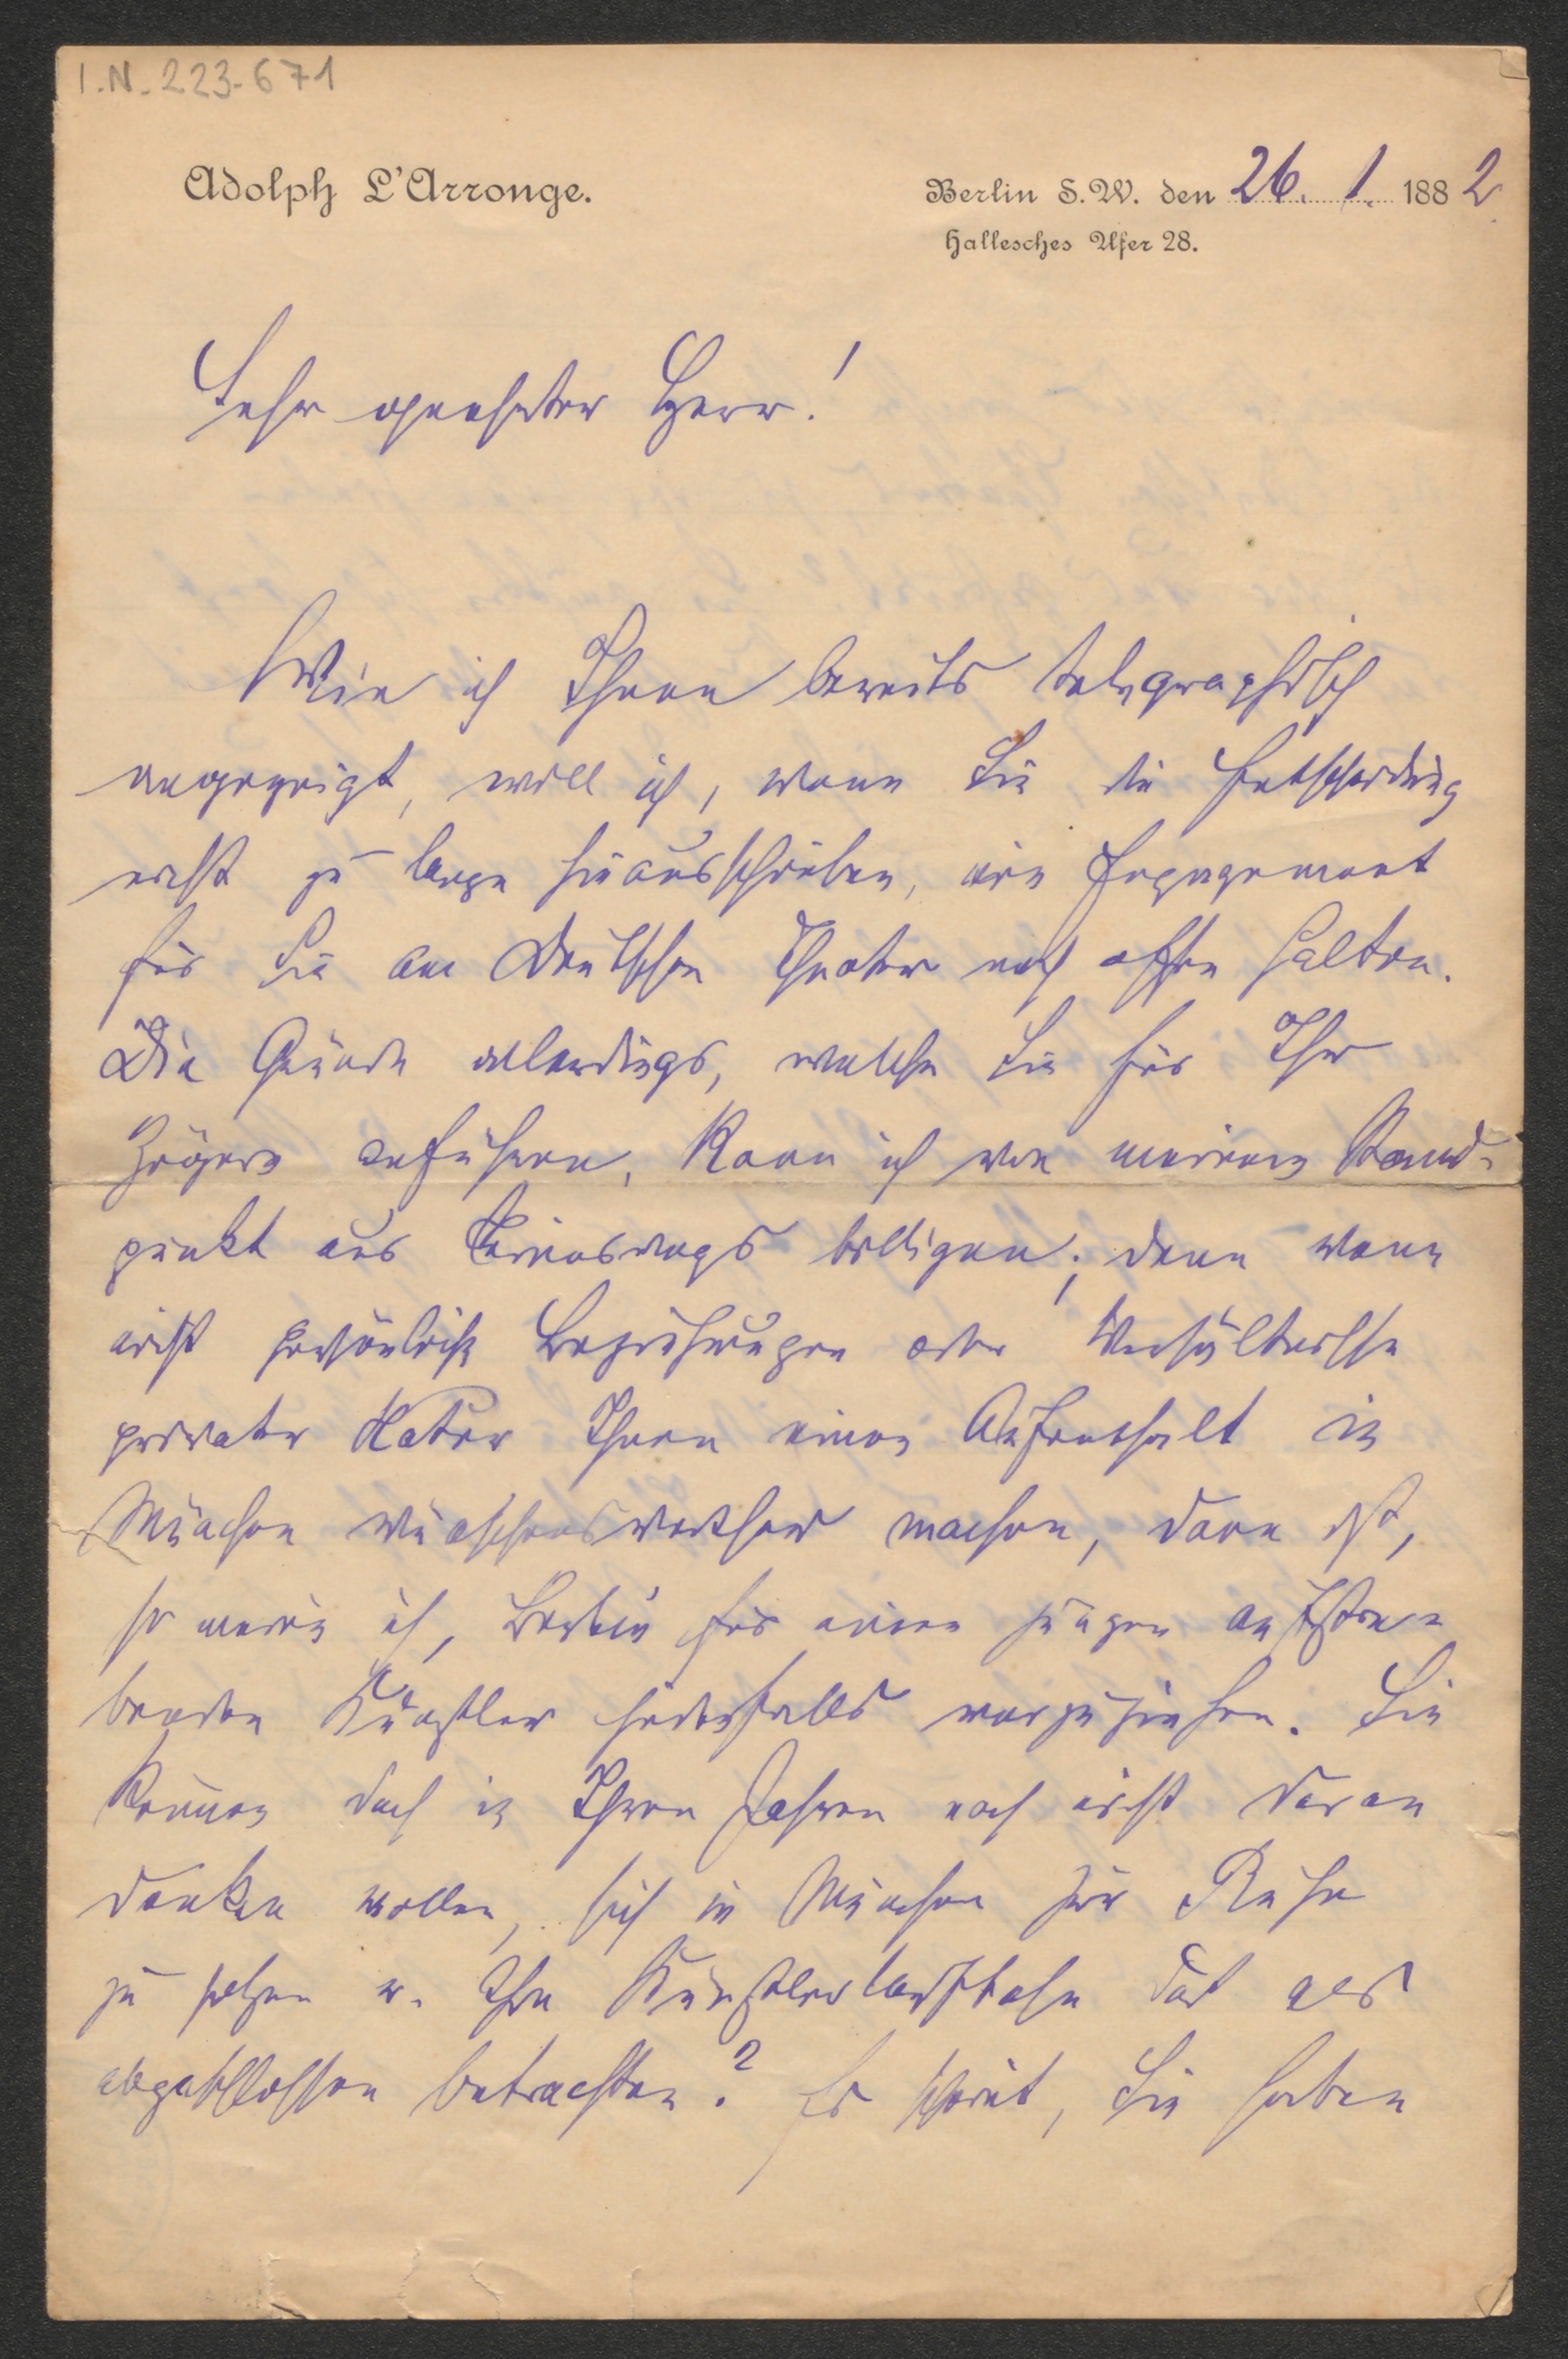 I.N. 223.671
Adolph L'Arronge.
Berlin S.W. den 26. 1. 1882
Hallesches Ufer 28.
Sehr geehrter Herr!
Wie ich Ihnen bereits telegraphisch
angezeigt, will ich, wenn Sie die Entscheidung
nicht zu lange hinausschieben, ein Engagement
für Sie am Deutschen Theater noch offen halten.
Die Gründe allerdings, welche Sie für Ihr
Zögern anführen, kann ich von meinem Stand-
punkt aus keineswegs billigen; denn wenn
nicht persönliche Beziehungen oder Verhältnisse
privater Natur Ihnen einen Aufenthalt in
München wünschenswerther machen, dann ist,
so mein ich, Berlin für einen jungen aufstre-
benden Künstler jedenfalls vorzuziehen. Sie
können doch in Ihren Jahren noch nicht daran
denken wollen, sich in München zur Ruhe
zu setzen u. Ihre Künstlerlaufbahn dort als
abgeschlossen betrachten? Es scheint, Sie haben